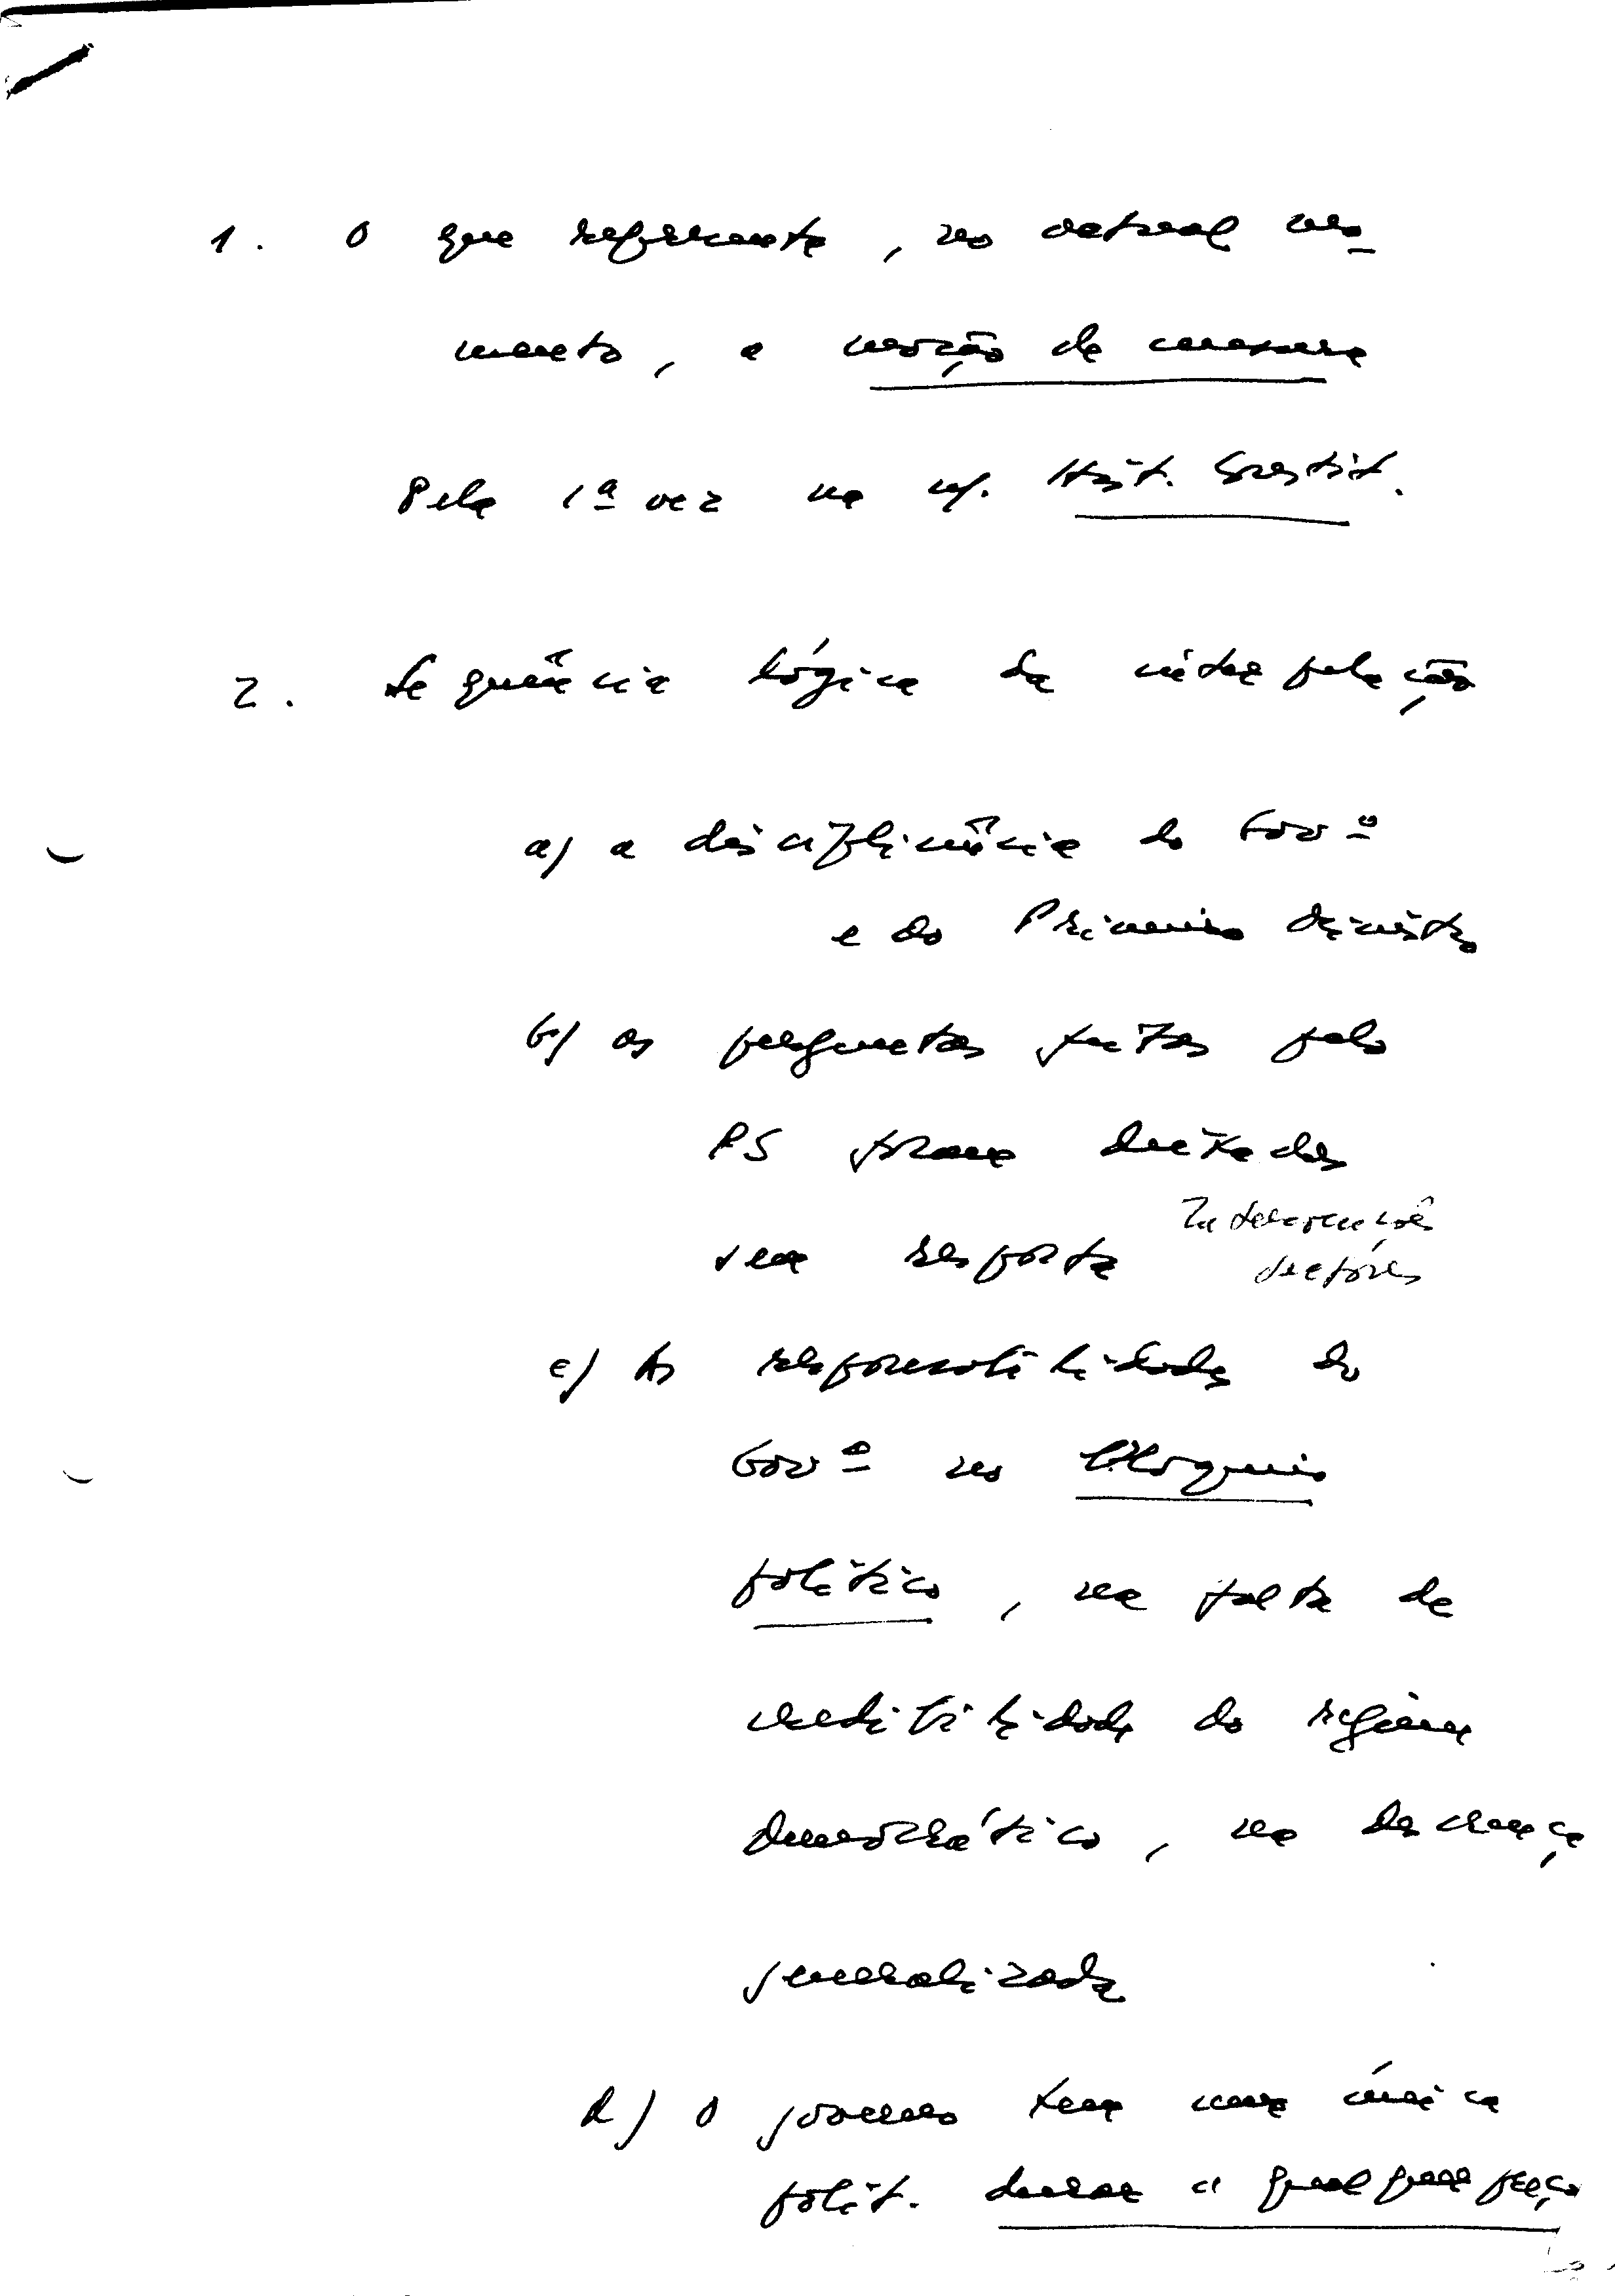 1. O que representa, no actual mo-
mento, a moção de censura
Pela 1ª vez na n/. Hist. Constit.
2. Sequência lógica da interpelação
a) a disciplicência do Govº
e do Primeiro Ministro
b) as perguntas feitas pelo
PS foram deixadas
sem resposta Intervenções
sectores
c) As responsabilidades do
Govº no bloqueio
político, na falta de
credibilidade do regime
democrático, na descrença
generalizada
d) O governo tem uma única
polít. durar a qualquer preço